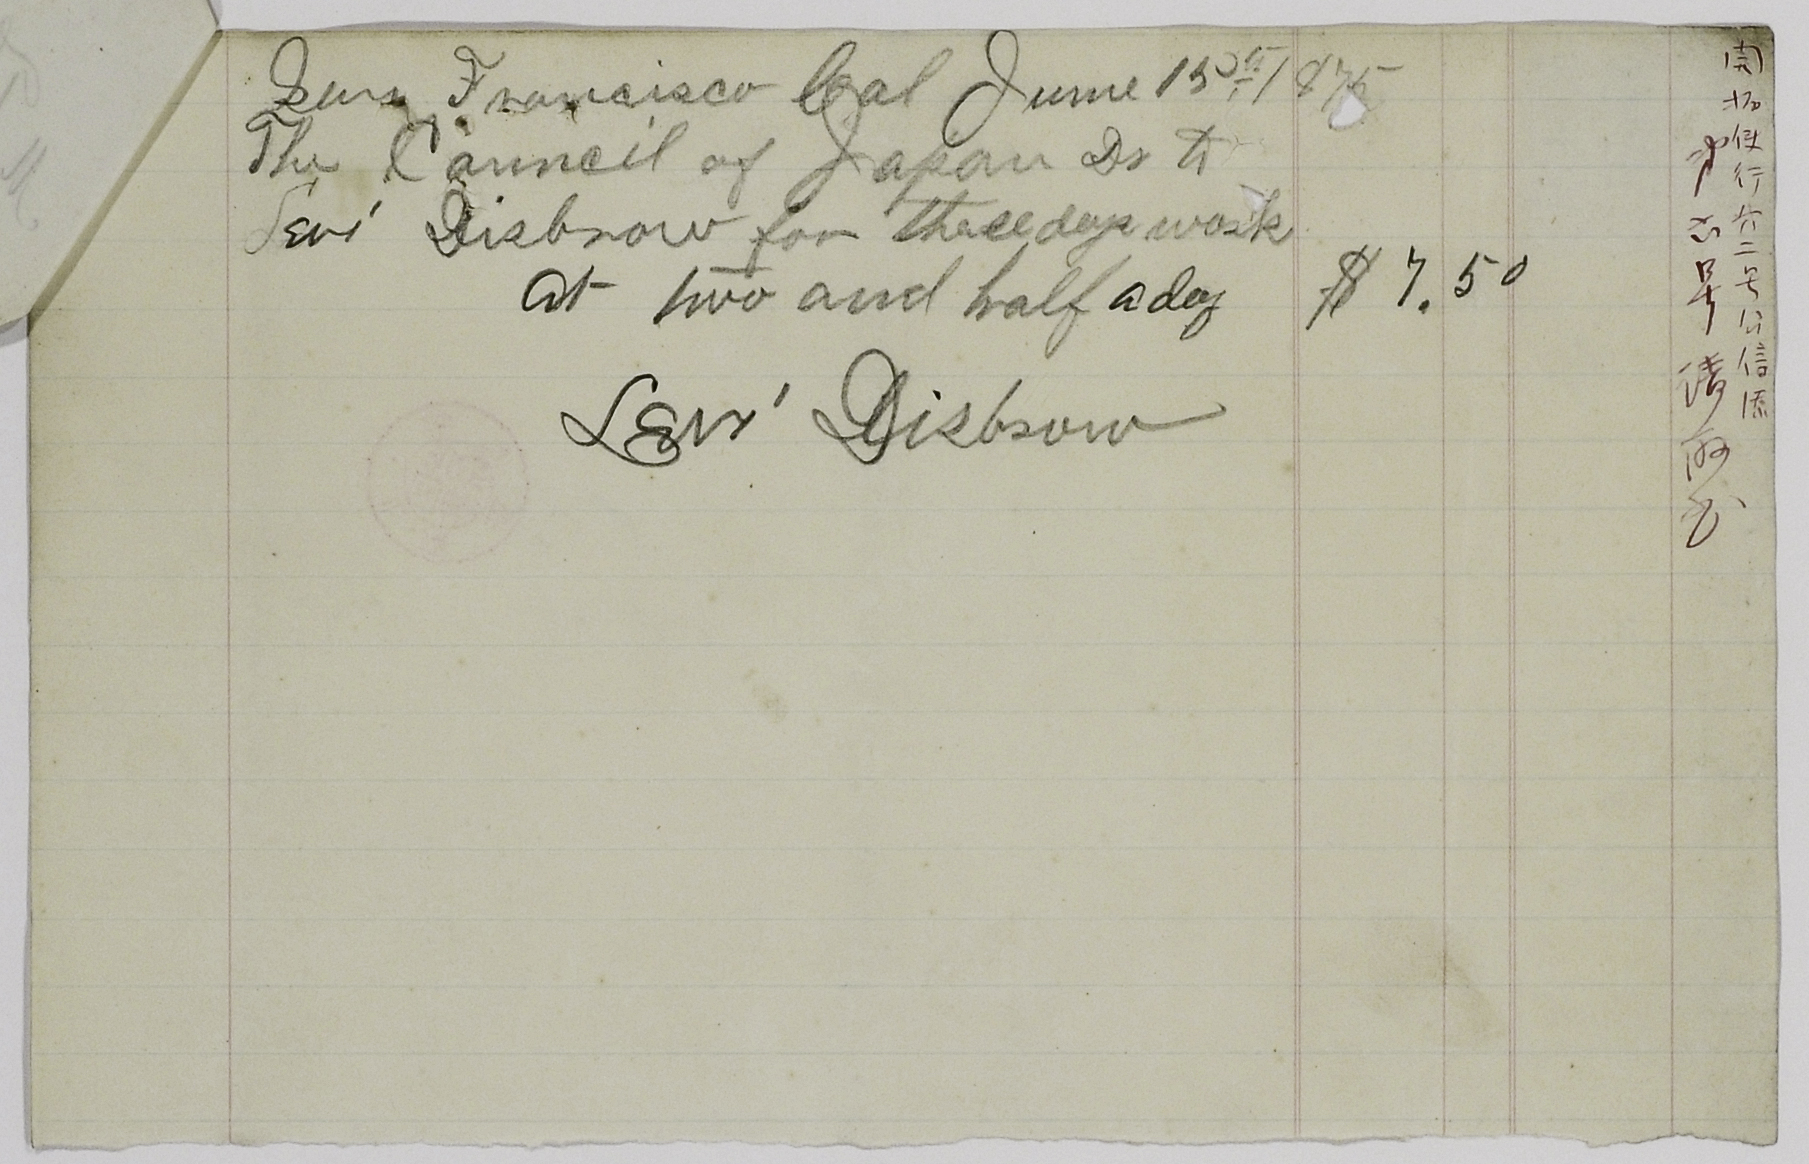 San Francisco Cal June 15th 1875
The Council of Japan Dr to
Levi Disbrow for three days work
at two and half a day $ 7.50
Levi Disbrow
開拓使行六二号公信添
第六号 請取書